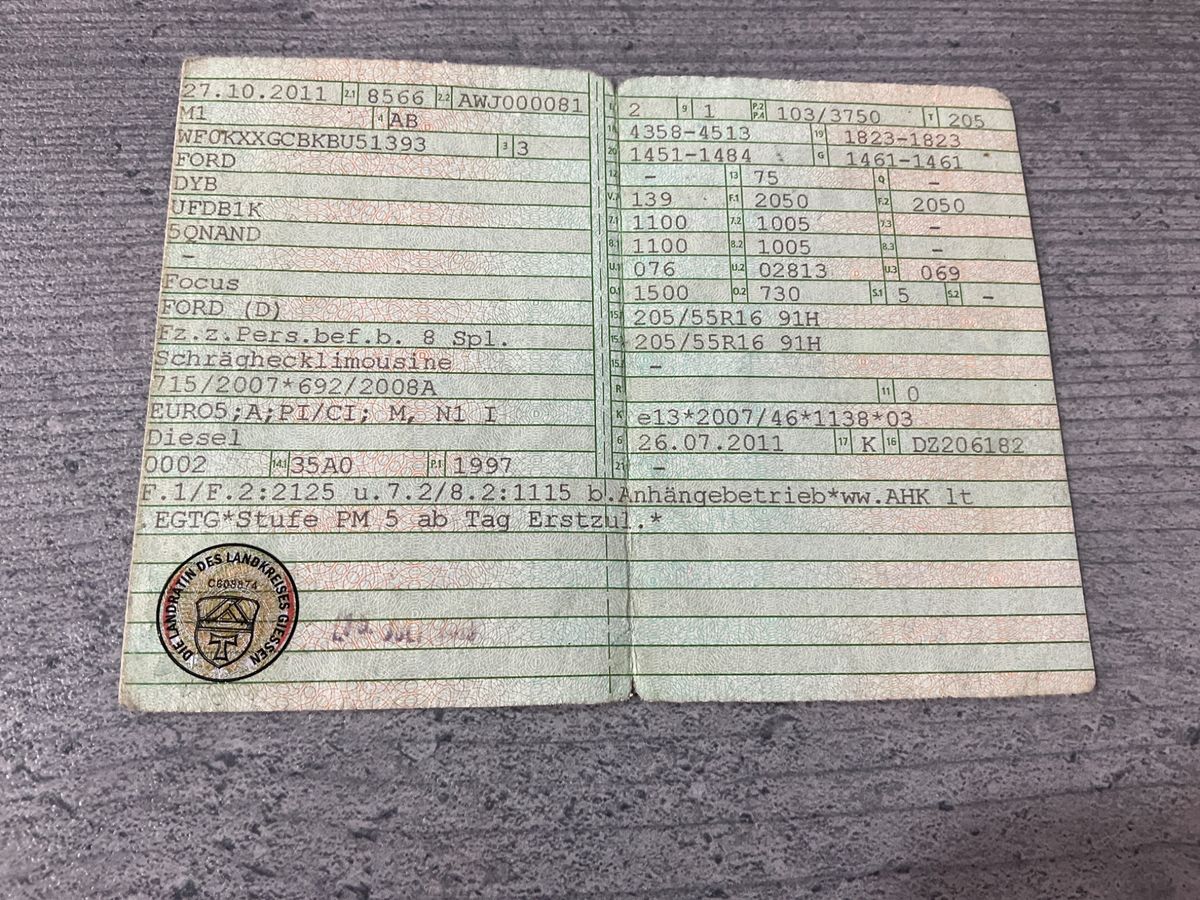 27.10.2011 2.1 8566 2.2 AWJ000081
M1 4 AB
WF0KXXGCBKBU51393 3 3
FORD
DYB
UFDB1K
5QNAND
–
Focus
FORD (D)
Fz.z.Pers.bef.b. 8 Spl.
Schrägheckl­imousine
715/2007*692/2008A
EURO5;A;PI/CI; M, N1 I
Diesel
0002 14.1 35A0 P.1 1997
L 2 9 1 P.2 P.4 103/3750 T 205
18 4358-4513 19 1823-1823
20 1451-1484 G 1461-1461
12 – 13 75 Q –
V.7 139 F.1 2050 F.2 2050
7.1 1100 7.2 1005 7.3 –
8.1 1100 8.2 1005 8.3 –
U.1 076 U.2 02813 U.3 069
O.1 1500 O.2 730 S.1 5 S.2 –
15.1 205/55R16 91H
15.2 205/55R16 91H
15.3 –
R 11 0
K e13*2007/46*1138*03
6 26.07.2011 17 K 16 DZ206182
21 –
F.1/F.2:2125 u.7.2/8.2:1115 b.Anhängebetrieb*ww.AHK lt
.EGTG*Stufe PM 5 ab Tag Erstzul.*
DIE LANDRÄTIN DES LANDKREISES GIESSEN
C603874